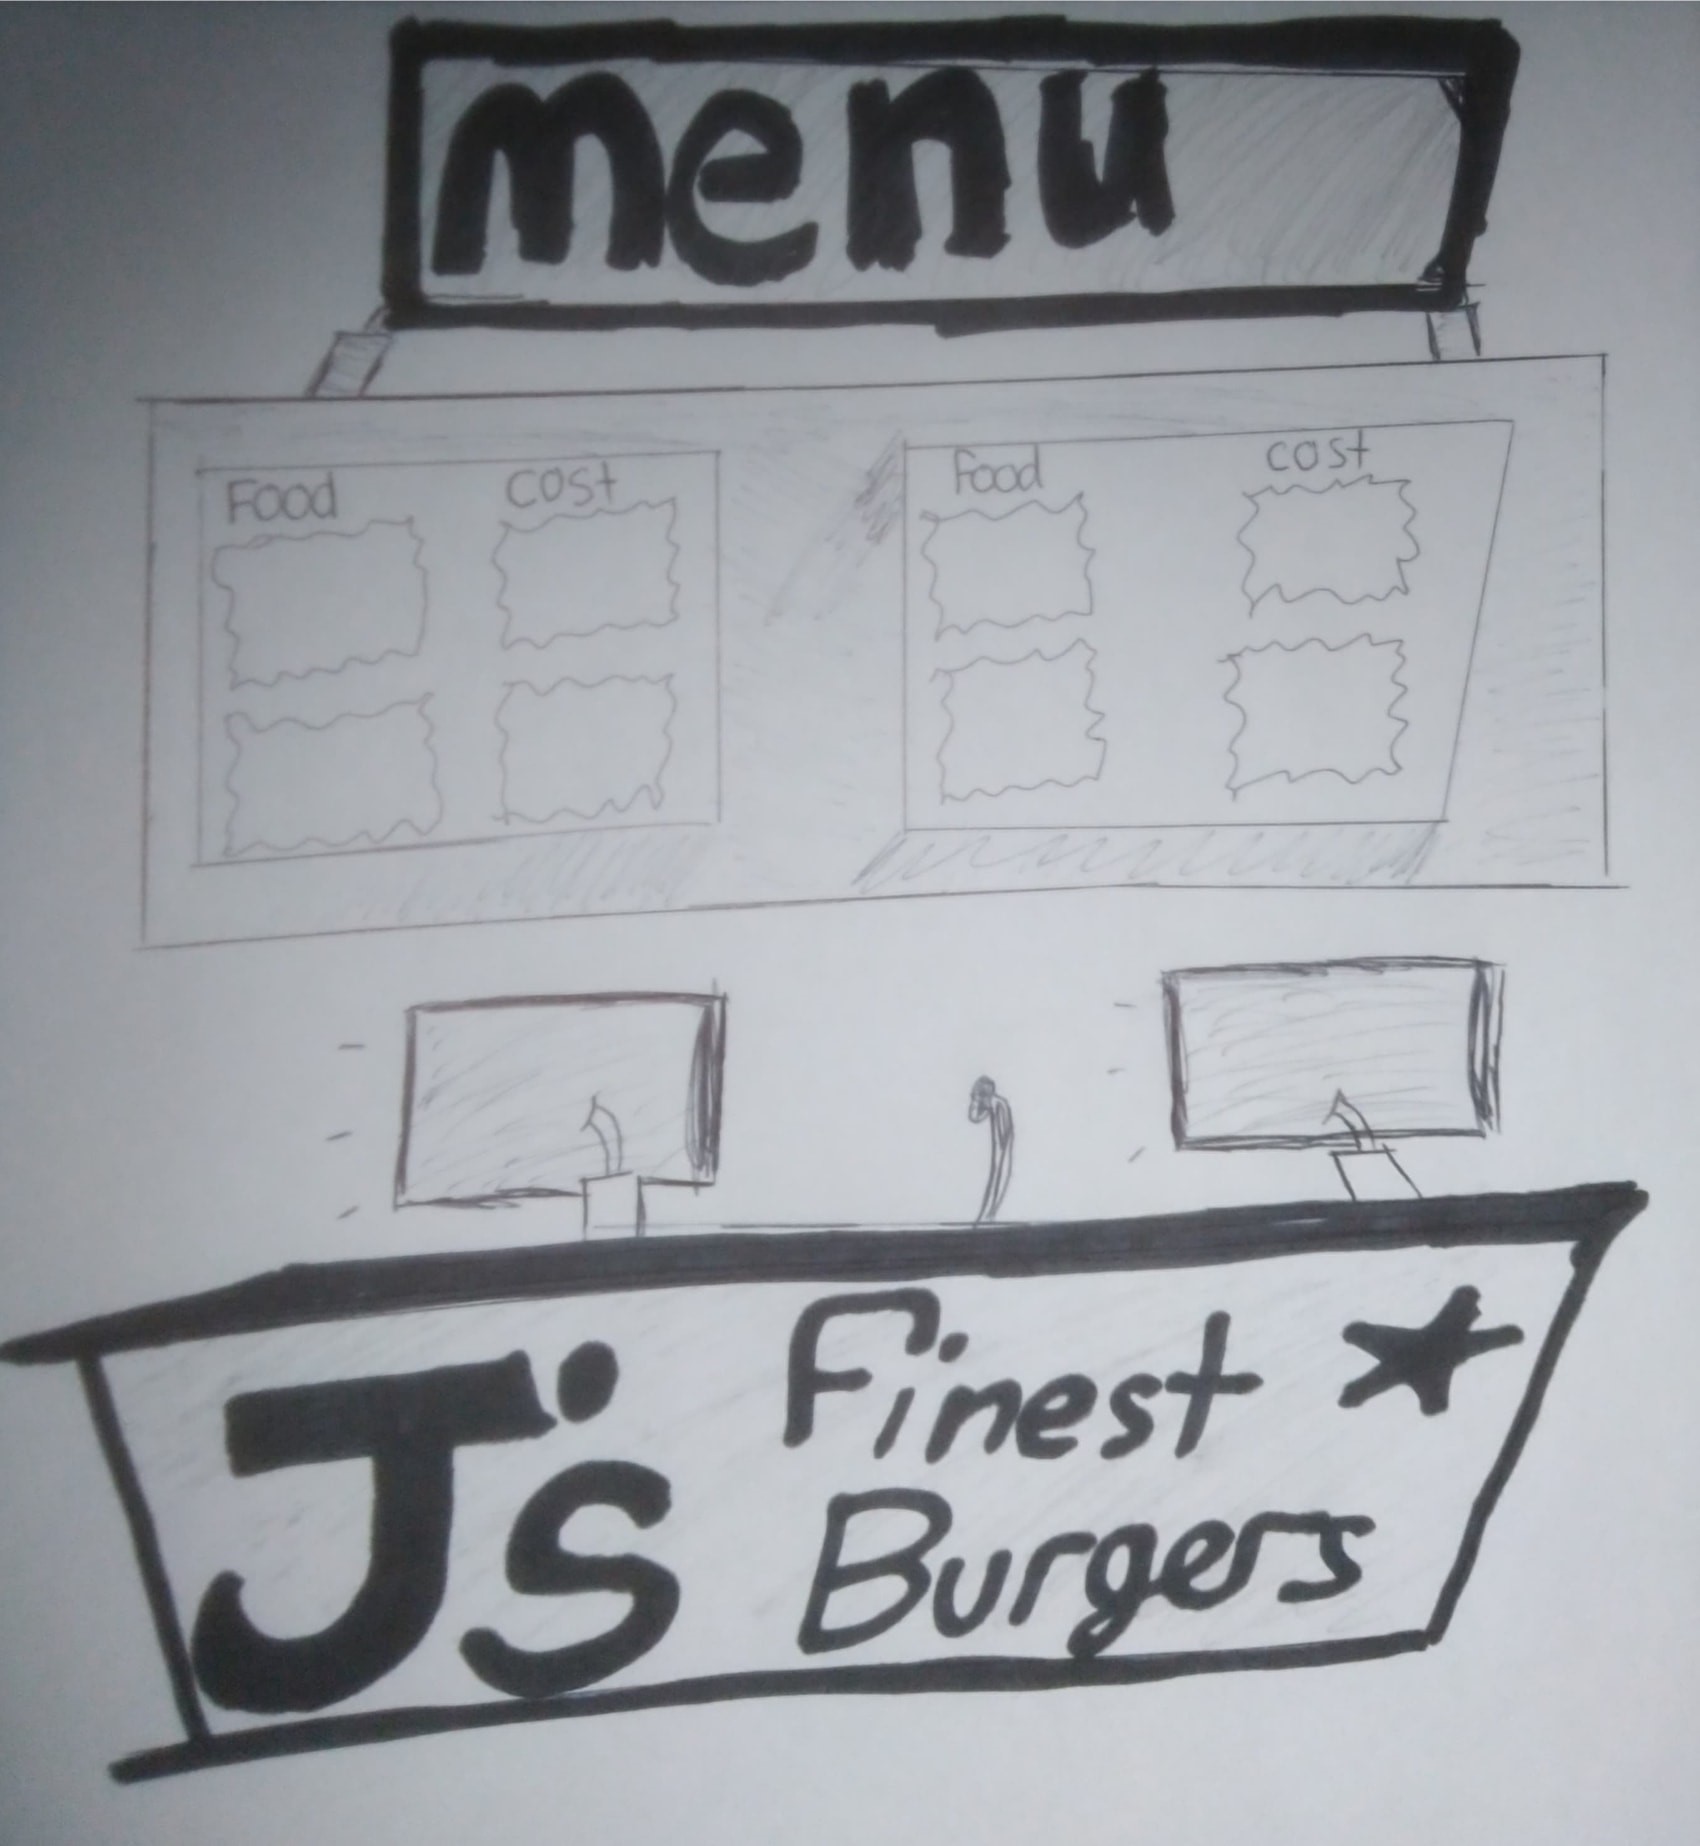 menu
Food cost
Food cost
J's
Finest
Burgers